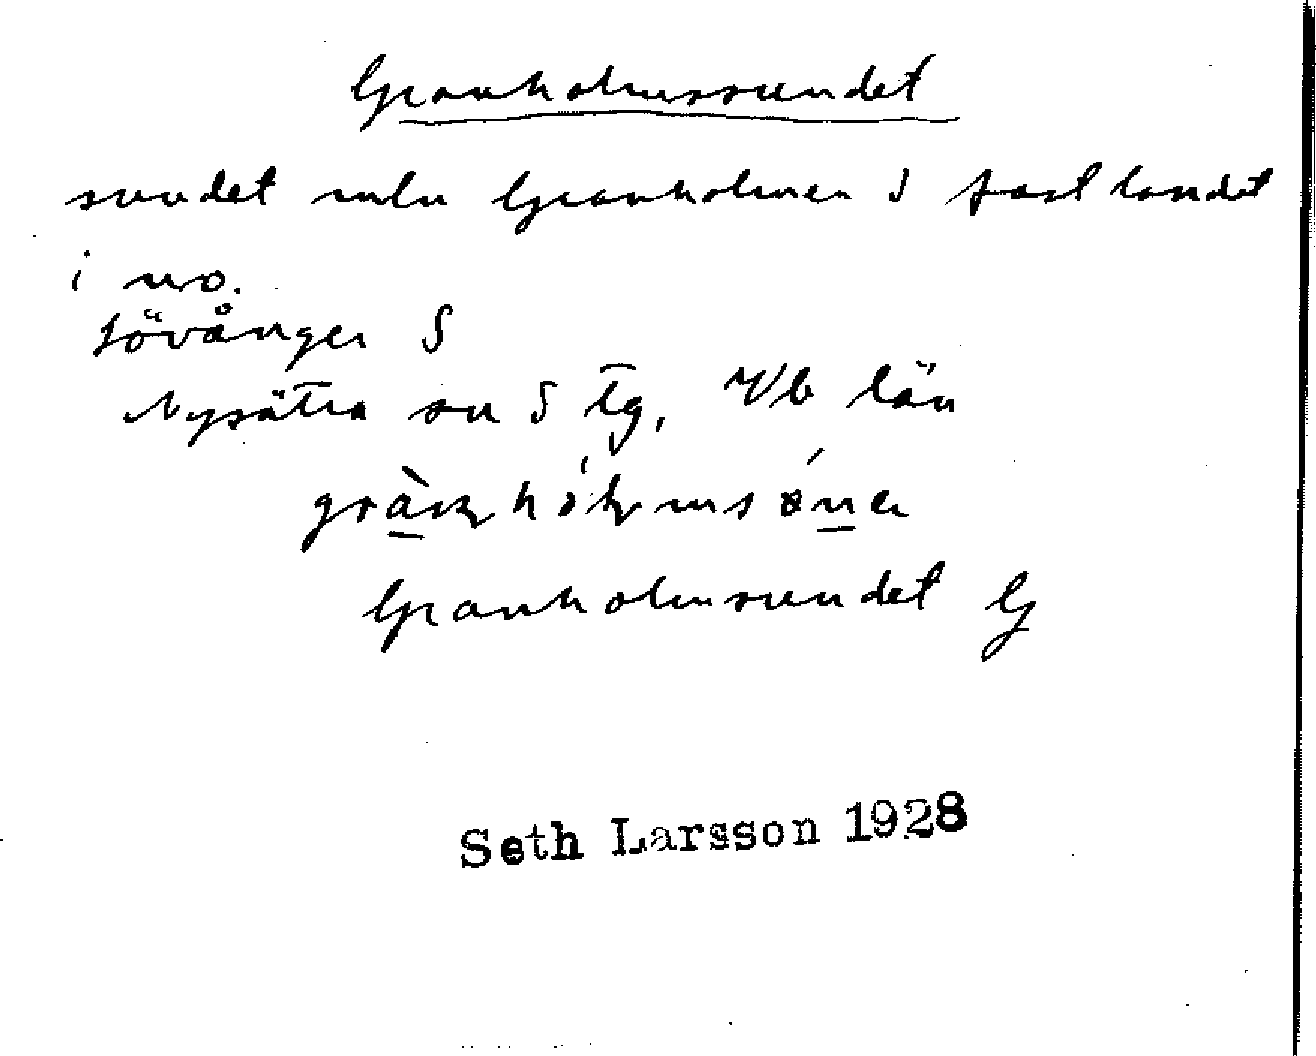 Granholmssundet
sundet mln Granholmen & fastlandet
i no.
Lövånger S
Nysätra sn S tg, Vb län
Granholmsundet G
Seth Larsson 1928